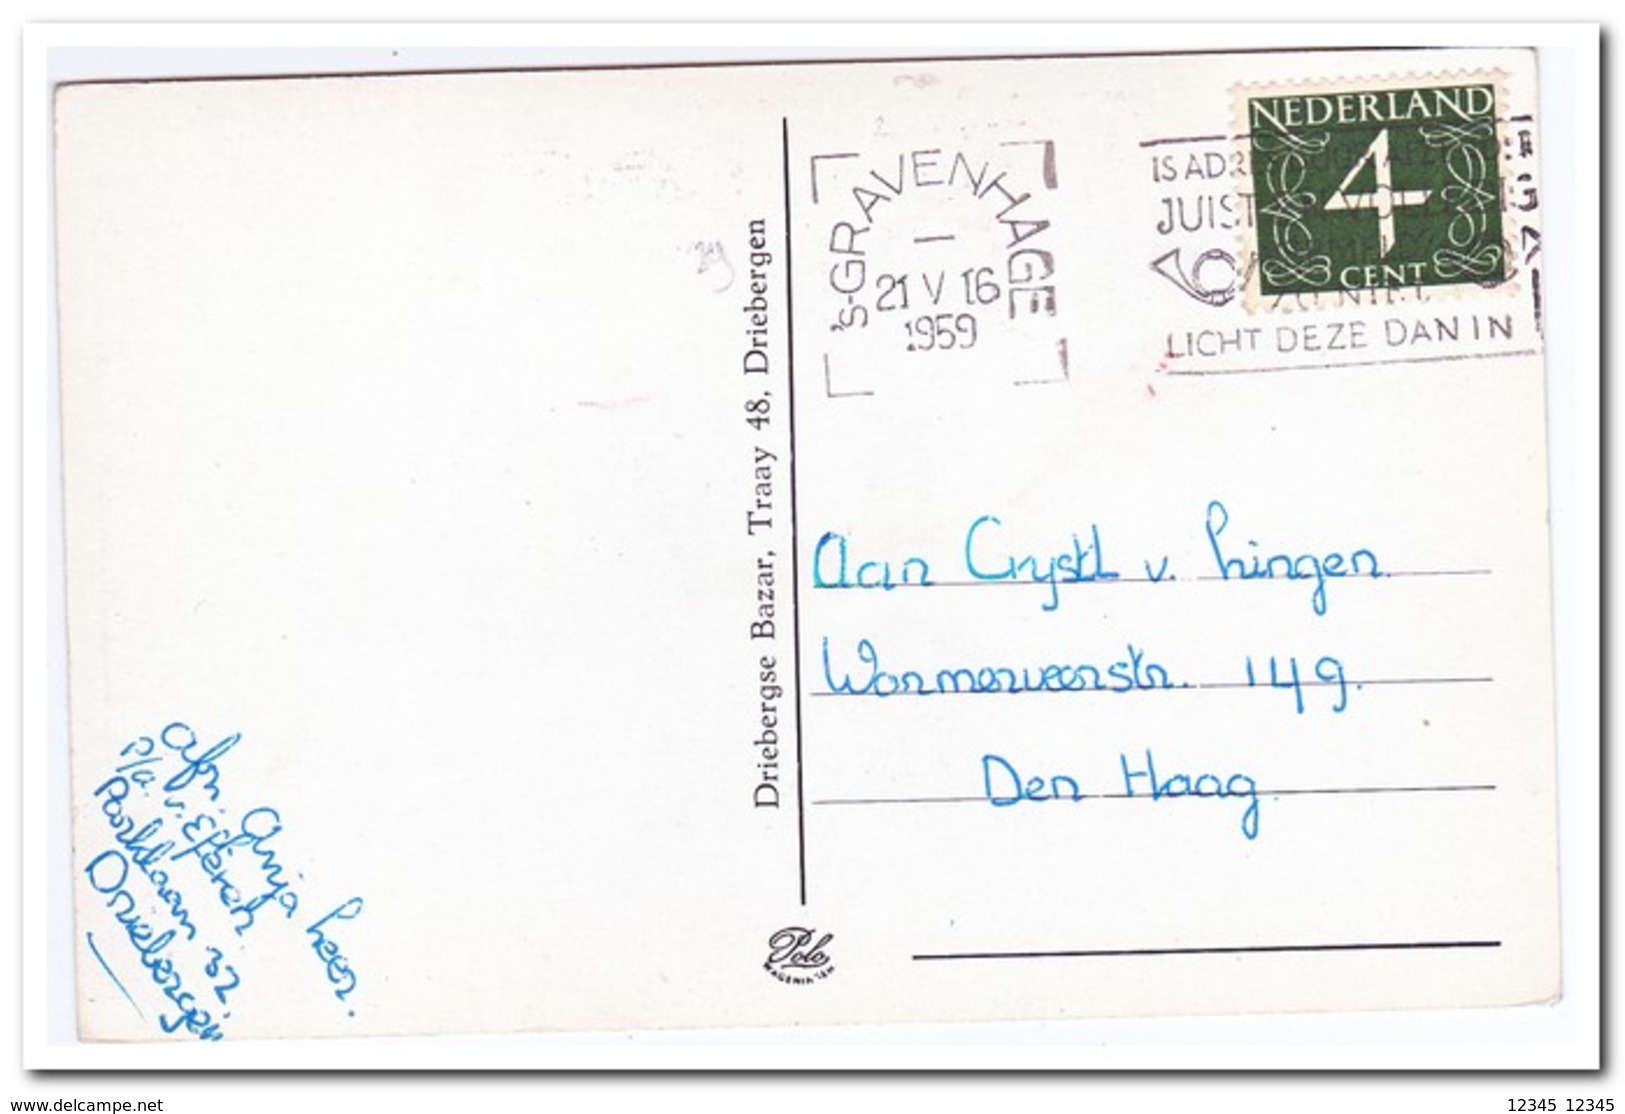 NEDERLAND
4
CENT
's-GRAVENHAGE
1
21 V 16
1959
IS ADRES
JUIST
ZO NIET,
LICHT DEZE DAN IN
Driebergse Bazar, Traay 48, Driebergen
Aan Crystl v. Lingen.
Wormerveerstr. 149.
Den Haag.
afz. Anja Leer.
p/a. v. Efferen
Parklaan 32
Driebergen
Polo
WAGENINGEN
www.delcampe.net
12345 12345